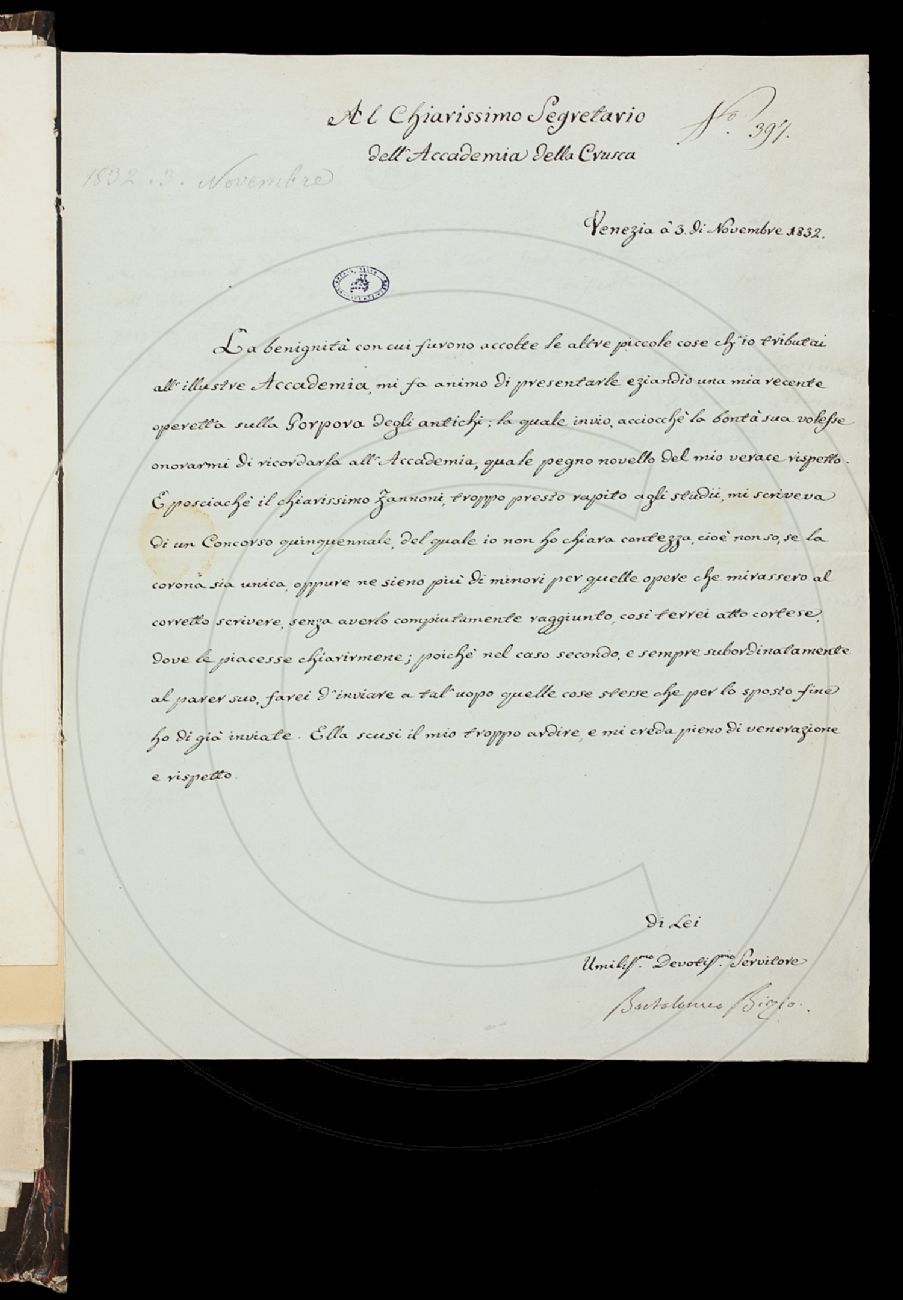 Al Chiarissimo Segretario
N.º 397.
dell'Accademia della Crusca
1832. 3. Novembre
Venezia à 3. di Novembre 1832.
La benignità con cui furono accolte le altre piccole cose ch'io tributai
all'illustre Accademia, mi fa animo di presentarle eziandio una mia recente
operetta sulla Porpora degli antichi; la quale invio, acciocchè la bontà sua volesse
onorarmi di ricordarla all'Accademia, quale pegno novello del mio verace rispetto.
E posciachè il chiarissimo Zannoni, troppo presto rapito agli studii, mi scriveva
di un Concorso quinquennale, del quale io non ho chiara contezza, cioè non so, se la
corona sia unica, oppure ne sieno più di minori per quelle opere che mirassero al
corretto scrivere, senza averlo compiutamente raggiunto, così terrei atto cortese,
dove le piacesse chiarirmene; poichè nel caso secondo, e sempre subordinatamente
al parer suo, farei d'inviare a tal'uopo quelle cose stesse che per lo sposto fine
ho di già inviate. Ella scusi il mio troppo ardire, e mi creda pieno di venerazione
e rispetto.
di Lei
Umiliss.mo Devotiss.mo Servitore
Bartolomeo Bizio.